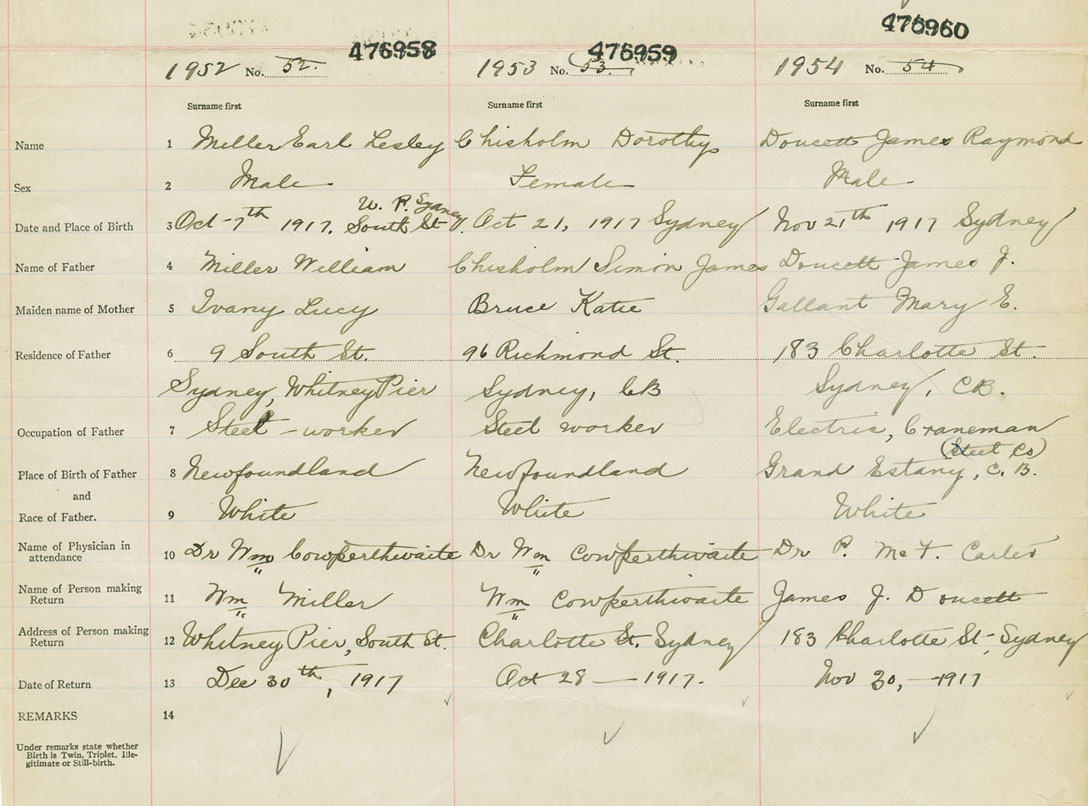 476958 476959 476960
1952 No. 52. 1953 No. 53. 1954 No. 54
Surname first Surname first Surname first
Name 1 Miller Earl Lesley Chisholm Dorothy Doucett James Raymond
Sex 2 Male Female Male
W. P. Sydney
Date and Place of Birth 3 Oct 7th 1917. South St. Oct 21, 1917 Sydney Nov 21th 1917 Sydney
Name of Father 4 Miller William Chisholm Simon James Doucett James J.
Maiden name of Mother 5 Ivany Lucy Bruce Katie Gallant Mary E.
Residence of Father 6 9 South St. 96 Richmond St. 183 Charlotte St.
Sydney, Whitney Pier Sydney, CB Sydney, CB.
Occupation of Father 7 Steel-worker Steel worker Electric, Craneman
(Steel Co)
Place of Birth of Father 8 Newfoundland Newfoundland Grand Estany, C. B.
and
Race of Father. 9 White White White
Name of Physician in
attendance 10 Dr Wm Cowperthwaite Dr Wm Cowperthwaite Dr P.
Name of Person making
Return 11 Wm Miller Wm Cowperthwaite James J. Doucett
Address of Person making
Return 12 Whitney Pier, South St. Charlotte St. Sydney 183 Charlotte St, Sydney
Date of Return 13 Dec 30th, 1917 Oct 28 — 1917. Nov 30, — 1917
REMARKS 14
Under remarks state whether
Birth is Twin, Triplet. Ille-
gitimate or Still-birth.